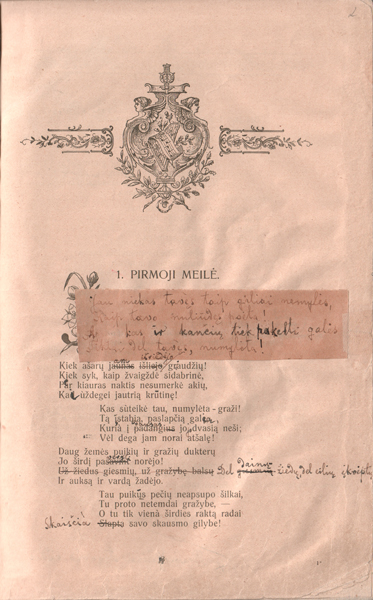 1. PIRMOJI MEILĖ.
Jau niekas tavęs taip giliai nemylės,
kaip tavo nuliūdęs poets!
kas ir kančių tiek pakelti galės,
del tavęs, numylėta!
Kiek ašarų jaunas išliejo graudžių!
Kiek syk, kaip žvaigždė sidabrinė,
Per kiauras naktis nesumerkė akių,
Kad uždegei jautrią krūtinę!
Kas suteikė tau, numylėta-graži!
Tą stabią, paslapčią galią,
Kuria į padangius jo dvasią neši;
Vėl dega jam norai atšalę!
Daug žemės puikių ir gražių dukterų
Jo širdį norėjo!
Už žiedus giesmių, už gražybę balsų Del dainų žiedų, del eilių
Ir auksą ir vardą žadėjo.
Tau puikųs pečių neapsupo šilkai,
Tu proto netemdai gražybe,
O tu tik viena širdies raktą radai
Skaisčia Slapta savo skausmo gilybe!